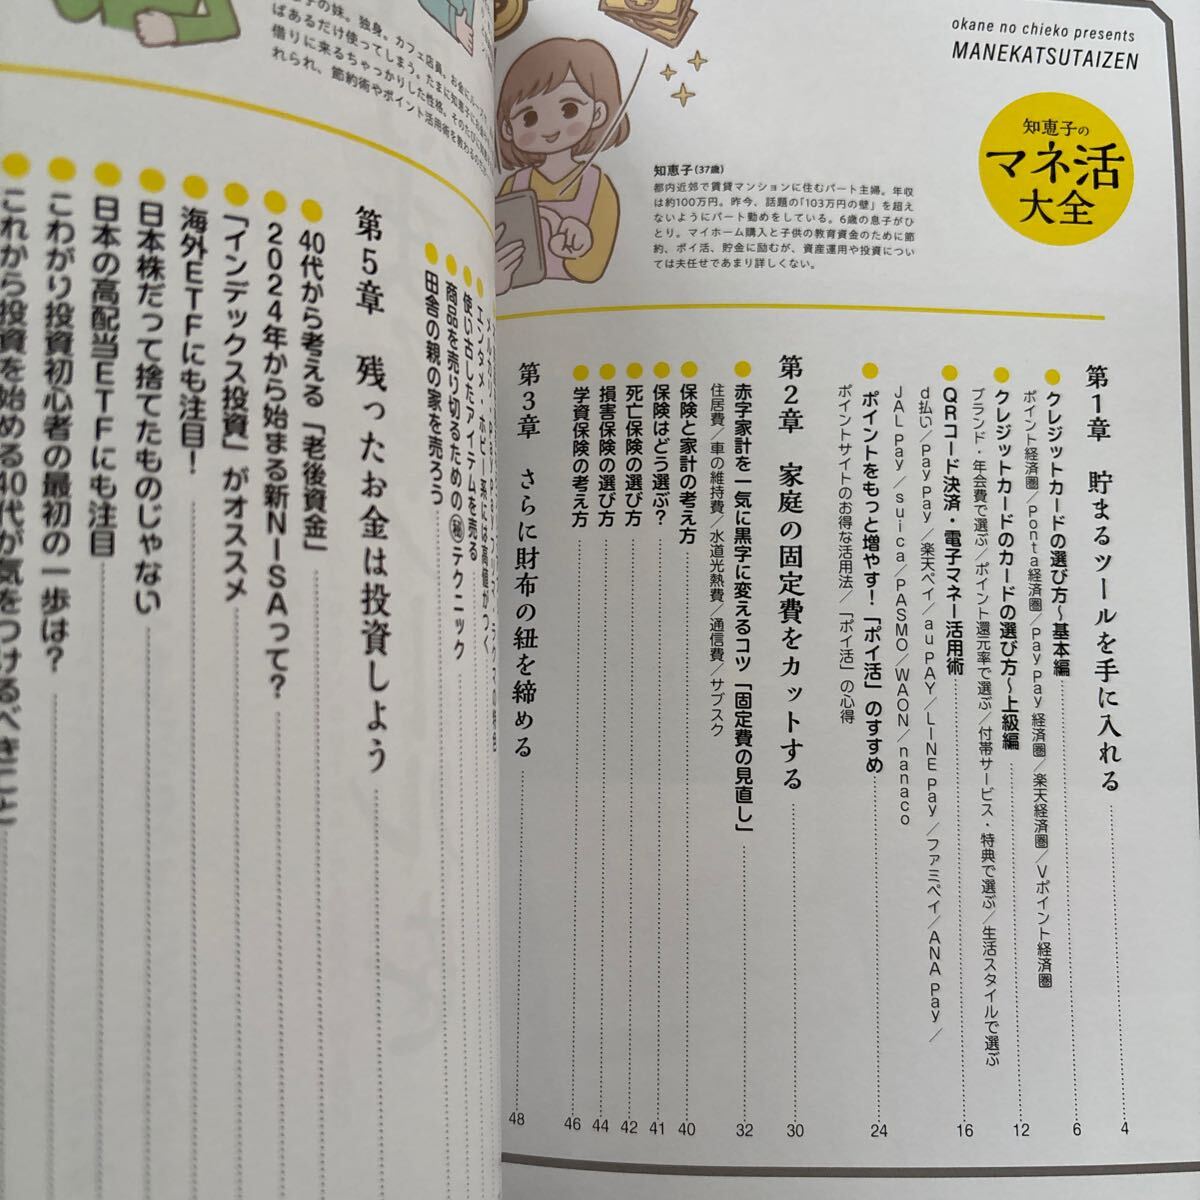 okane no chieko presents
MANEKATSUTAIZEN
知恵子の
マネ活
大全
知恵子(37歳)
都内近郊で賃貸マンションに住むパート主婦。年収
は約100万円。昨今、話題の「103万円の壁」を超え
ないようにパート勤めをしている。6歳の息子がひ
とり。マイホーム購入と子供の教育資金のために節
約、ポイ活、貯金に励むが、資産運用や投資につい
ては夫任せであまり詳しくない。
第1章 貯まるツールを手に入れる 4
クレジットカードの選び方〜基本編 6
ポイント経済圏/Ponta経済圏/PayPay経済圏/楽天経済圏/Vポイント経済圏
クレジットカードのカードの選び方〜上級編 12
ブランド・年会費で選ぶ/ポイント還元率で選ぶ/付帯サービス・特典で選ぶ/生活スタイルで選ぶ
QRコード決済・電子マネー活用術 16
d払い/PayPay/楽天ペイ/au PAY/LINE Pay/ファミペイ/ANA Pay/
JAL Pay/suica/PASMO/WAON/nanaco
ポイントをもっと増やす!「ポイ活」のすすめ 24
ポイントサイトのお得な活用法/「ポイ活」の心得
第2章 家庭の固定費をカットする 30
赤字家計を一気に黒字に変えるコツ「固定費の見直し」 32
住居費/車の維持費/水道光熱費/通信費/サブスク
保険と家計の考え方 40
保険はどう選ぶ? 41
死亡保険の選び方 42
損害保険の選び方 44
学資保険の考え方 46
第3章 さらに財布の紐を締める 48
子の妹。独身。カフェ店員。
ばあるだけ使ってしまう。たまに知恵子にお金を
借りに来るちゃっかりした性格。そのたびに
れられ、節約術やポイント活用術を教わる
エンタメ・ホビー系には高値がつく
使い古したアイテムを売る
商品を売り切るための㊙テクニック
田舎の親の家を売ろう
第5章 残ったお金は投資しよう
40代から考える「老後資金」
2024年から始まる新NISAって?
「インデックス投資」がオススメ
海外ETFにも注目!
日本株だって捨てたものじゃない
日本の高配当ETFにも注目
こわがり投資初心者の最初の一歩は?
これから投資を始める40代が気をつけるべきこと